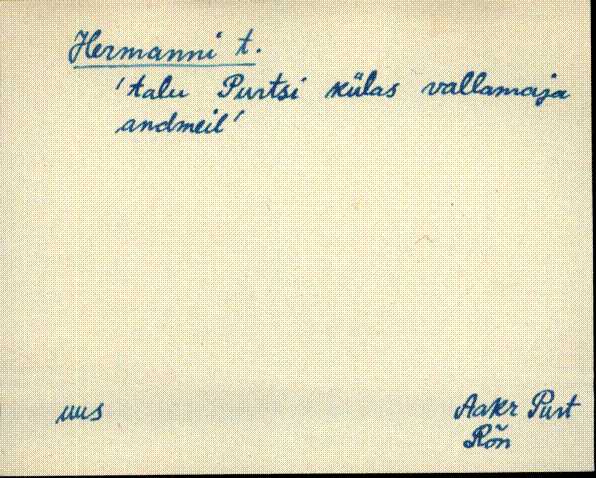 Hermanni t.
'talu Purtsi külas vallamaja
andmeil'
uus
Aakr Purt
Rõn